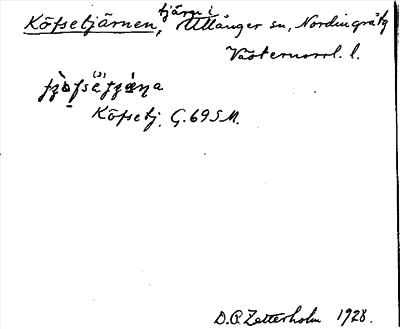 Köfsetjärnen, tjärn i Ullånger sn, Nordingrå tg
Västernorrl. l.
Köfsetj. G. 69 SM.
D.O. Zetterholm 1928.